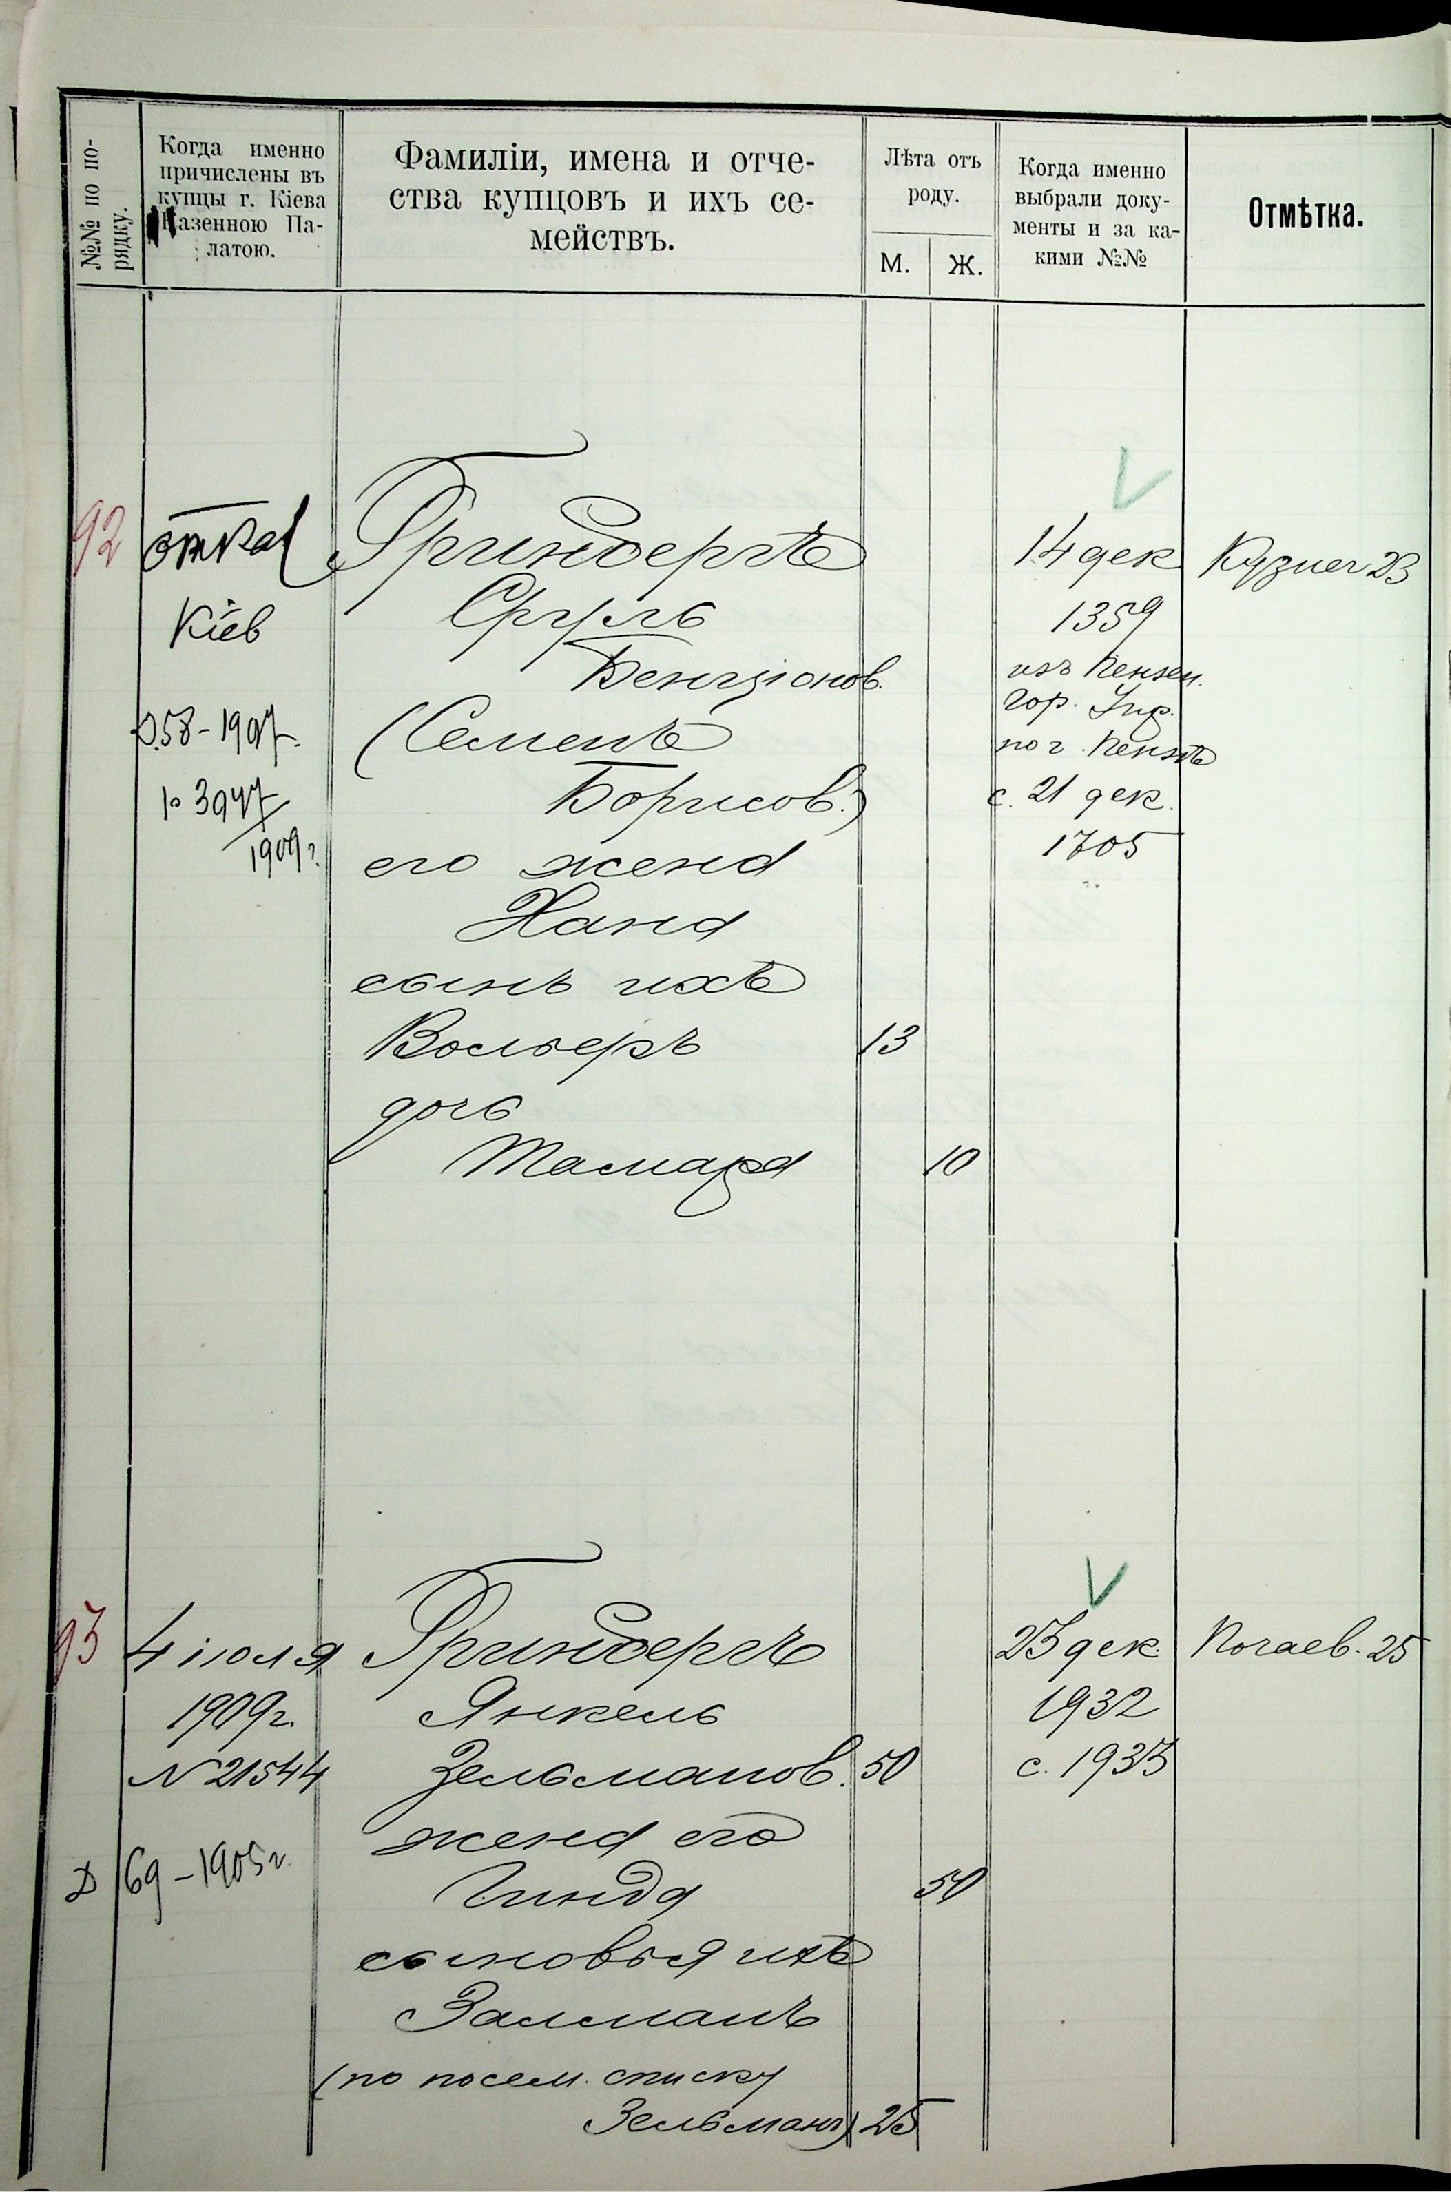 №№ по по-
рядку.
Когда именно
причислены въ
купцы г. Кіева
Казенною Па-
латою.
Фамиліи, имена и отче-
ства купцовъ и ихъ се-
мействъ.
Лѣта отъ
роду.
М.
Ж.
Когда именно
выбрали доку-
менты и за ка-
кими №№
Отмѣтка.
92
Кіев
58-1907
3947
1909г.
Гринбергъ
Сруль
Бенціонов.
(Семенъ
Борисов.)
его жена
Хана
сынъ ихъ
Вольеръ
13
дочь
Тамара
10
14 дек
1359
изъ Пензен.
гор. Упр.
по г. Пензѣ
с. 21 дек.
1705
Кузнеч 23
93
4 іюля
1909г.
N 21544
Д 69-1905г.
Гринбергъ
Янкель
Зельманов.
50
жена его
Гинда
50
сыновья ихъ
Залманъ
(по посем. списку
Зельманъ)
25
23 дек.
1932
с. 1933
Почаев. 25